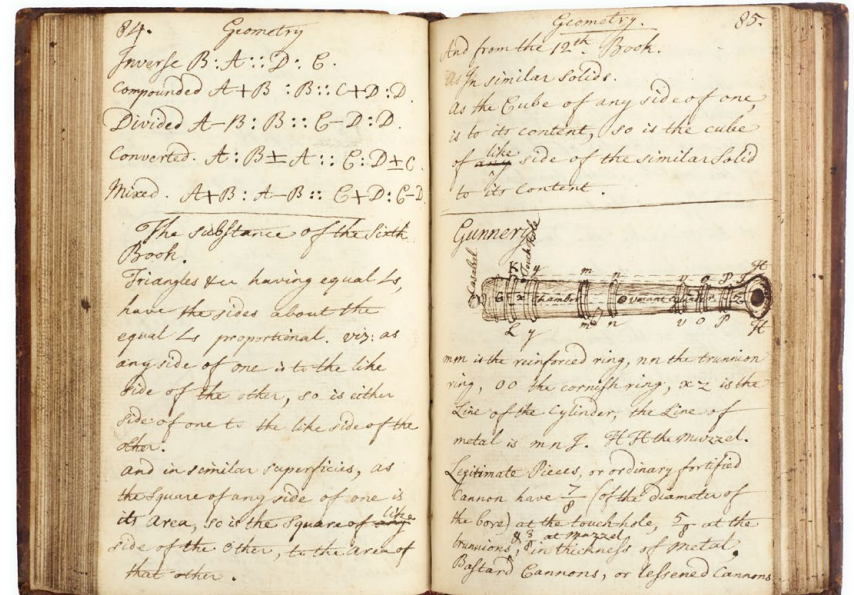 84. Geometry
Inverse B : A :: D : C.
Compounded A+B : B :: C+D : D
Divided A−B : B :: C−D : D.
Converted. A : B± A :: C : D±C
Mixed. A+B : A−B :: C+D : C−D
The substance of the Sixth
Book.
Triangles &c having equal Ls,
have the sides about the
equal Ls proportional. viz: as
any side of one is to the like
side of the other, so is either
side of one to the like side of the
other.
and in similar superficies, as
the Square of any side of one is
its Area, so is the Square of any like
side of the other, to the Area of
that other.
Geometry. 85.
And from the 12th Book.
As In similar Solids.
As the Cube of any side of one,
is to its content, so is the cube
of any like side of the similar Solid
to its Content.
Gunnery
Casabel
Touch Hole
K y m n v o P H
G x Chamber Vacant Cylinder z
L y m n v o P H
mm is the reinforced ring, nn the trunnion
ring, oo the cornish ring, xz is the
Line of the Cylinder, the Line of
metal is mnJ. HH the Muzzel.
Legitimate Pieces, or ordinary fortified
Cannon have 7/8 (of the diameter of
the bore) at the touch hole, 5/8 at the
trunnions, & 3/8 at Muzzel in thickness of Metal.
Bastard Cannons, or lessened Cannons